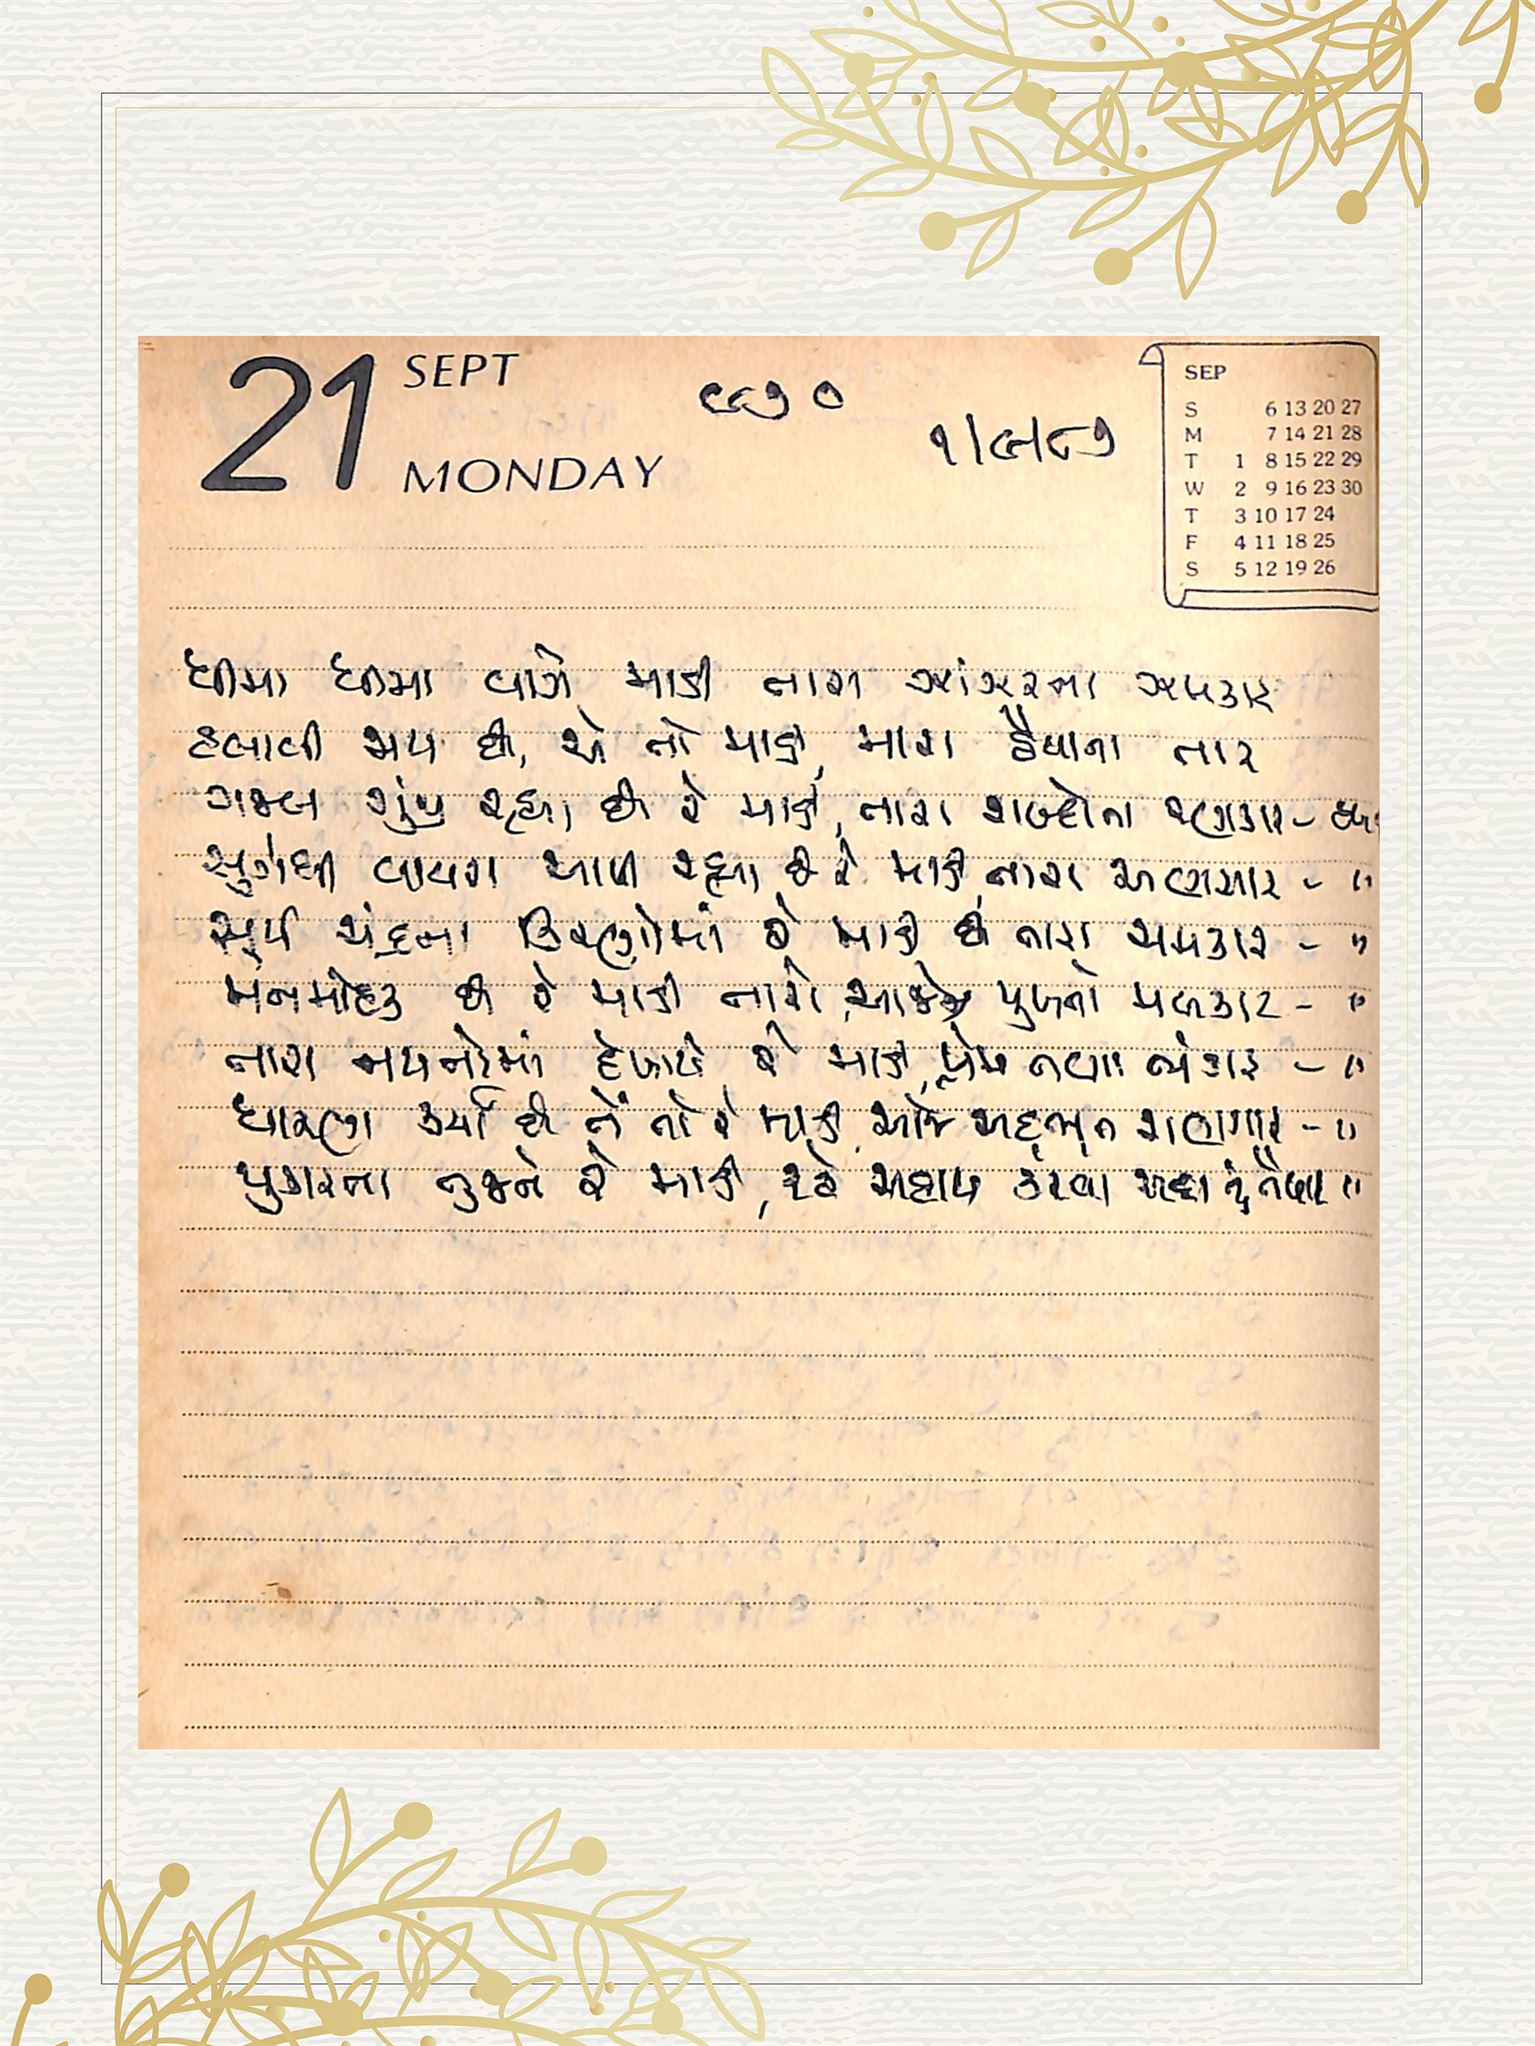 21 SEPT
MONDAY
૯૭૦
૧/૯/૮૭
SEP
S 6 13 20 27
M 7 14 21 28
T 1 8 15 22 29
W 2 9 16 23 30
T 3 10 17 24
F 4 11 18 25
S 5 12 19 26
ધીમા ધીમા વાગે માડી તારા ઝાંઝરના ઝમકાર
હલાવી જાય છે, એ તો માડી, મારા હૈયાના તાર
ગજબ ગુંથી રહ્યા છે રે માડી, તારા શબ્દોના રણકાર -
સુગંધી વાયરા આપી રહ્યા છે રે માડી તારા અણસાર - "
સૂર્ય ચંદ્રના કિરણોમાં રે માડી છે તારા ચમકાર - "
મનમોહક છે રે માડી તારો, મુખનો મલકાટ - "
તારા નયનોમાં દેખાયે રે માડી, પ્રેમ તણા અંગાર - "
ધારણ કર્યા છે તેં તો રે માડી આજે અદ્ભુત શણગાર - "
પુકારતા તુજને રે માડી, રહે સહાય કરવા સદા તું તૈયાર "